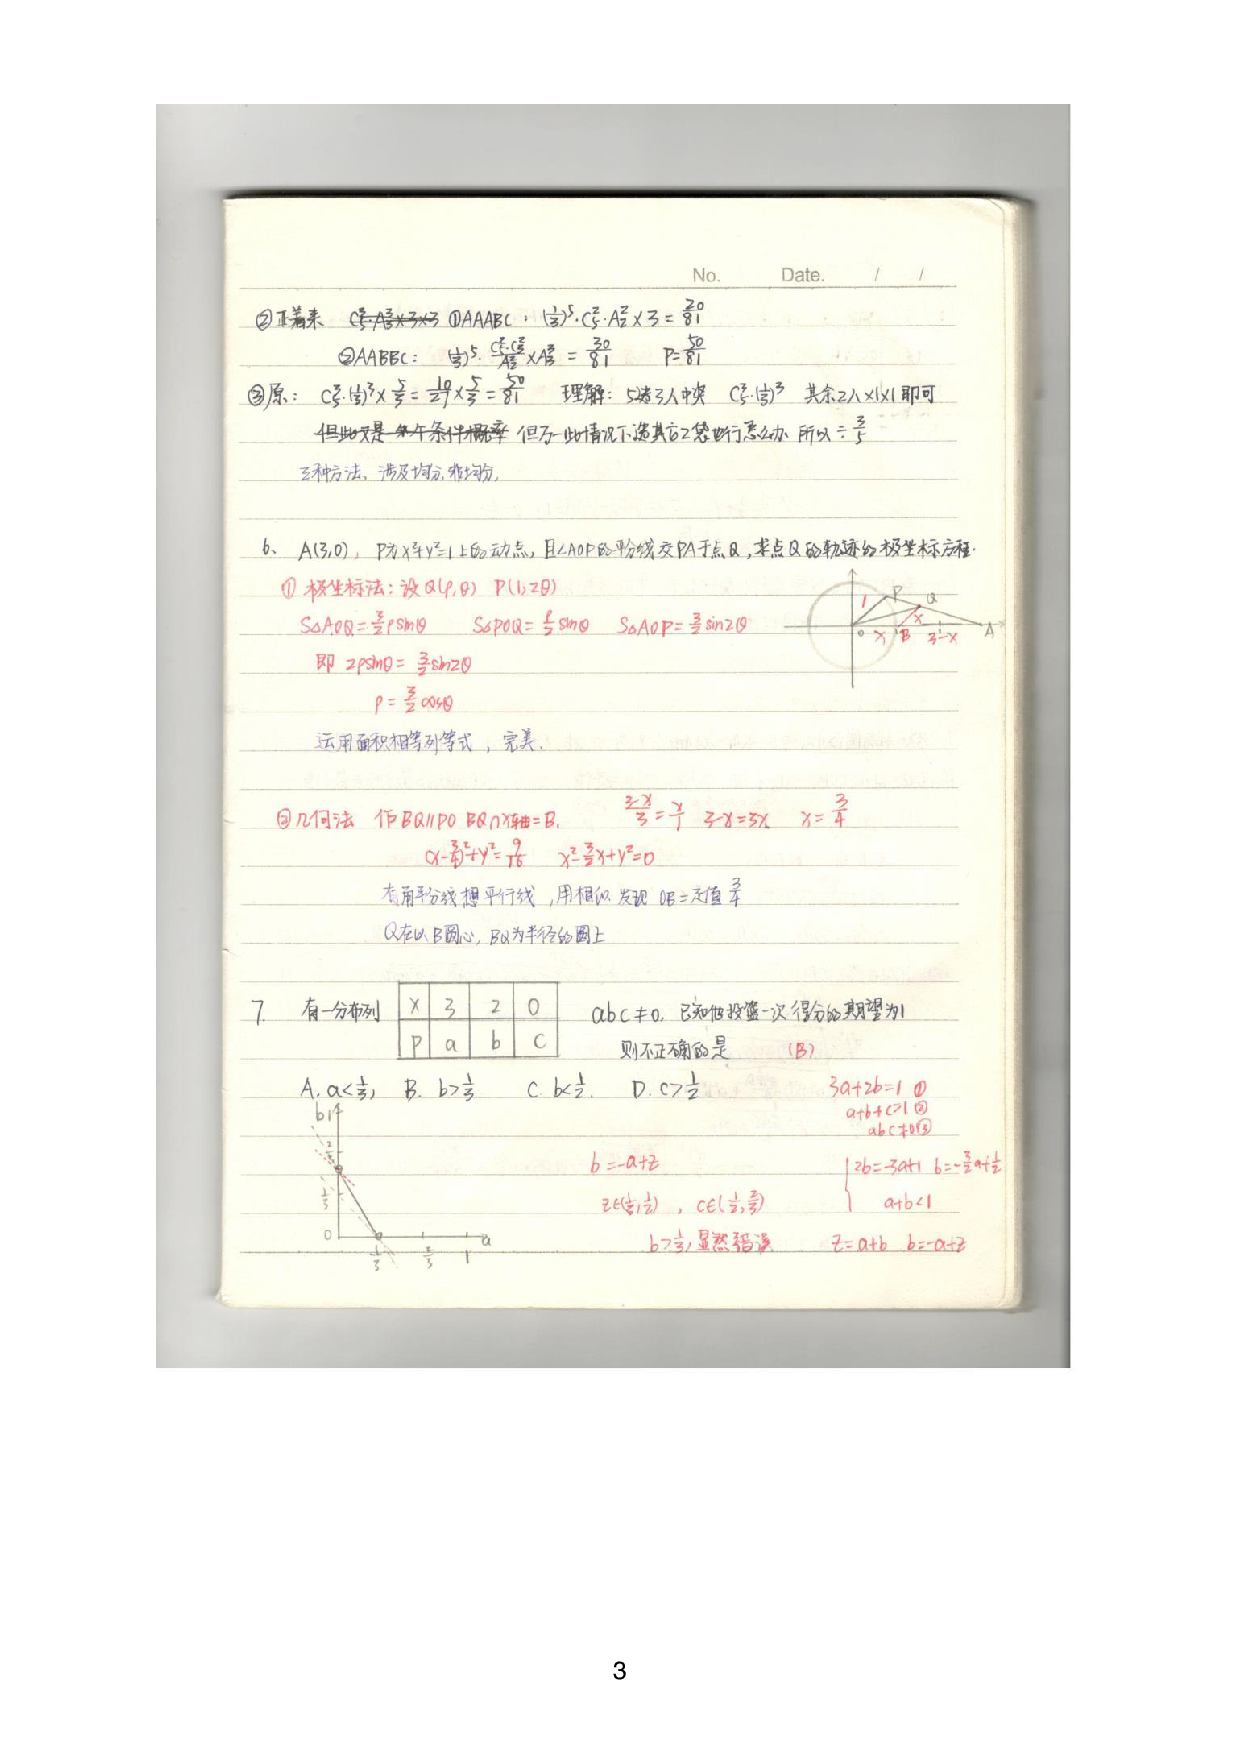 No. Date. / /
②正着来 C₅²·A₃³×3×3 ①AAABC: (1/3)⁵·C₅²·A₂²×3=20/81
②AABBC: (1/3)⁵· ×A₃³=30/81 P=50/81
③原: C₅³·(1/3)³×5/3=10/27×5/3=50/81 理解: 3人中奖 C₅³·(1/3)³ 其余2人×1×1即可
但此 是 条件概率 但 此情况下 其它2袋 所以÷3/5
三种方法, 涉及均分,非均分.
6、 A(3,0), P为x²+y²=1上的动点, 且∠AOP的平分线交PA于点Q, 求点Q的轨迹的极坐标方程.
①极坐标法: 设Q(ρ,θ) P(1,2θ)
S△AOQ=3/2ρsinθ S△POQ=ρ/2sinθ S△AOP=3/2sin2θ
即 2ρsinθ=3/2sin2θ
ρ=3/2cosθ
运用面积相等列等式, 完美.
1 P Q x O x B 3-x A
②几何法 作BQ//PO BQ∩X轴=B. (3-x)/3=x/1 3-x=3x x=3/4
(x-3/4)²+y²=9/16 x²-3/2x+y²=0
有角平分线想平行线, 用相似发现 OB=定值3/4
Q在以B圆心, BQ为半径的圆上
7. 有一分布列 X 3 2 0 abc≠0. 已知他投篮一次得分的期望为1
P a b c 则不正确的是 (B)
A. a<1/3, B. b>1/3 C. b<1/2. D. c>1/2 3a+2b=1 ①
a+b+c=1 ②
abc≠0 ③
b 1 2/3 1/3 0 1/3 2/3 1 a
b=-a+z 2b=-3a+1 b=-3/2a+1/2
z∈(1/3,1/2), c∈(1/2,2/3) a+b<1
b>1/3, 显然错误 z=a+b b=-a+z
3